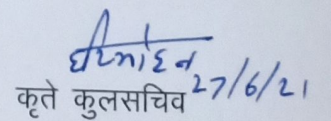 27/6/21
कृते कुलसचिव